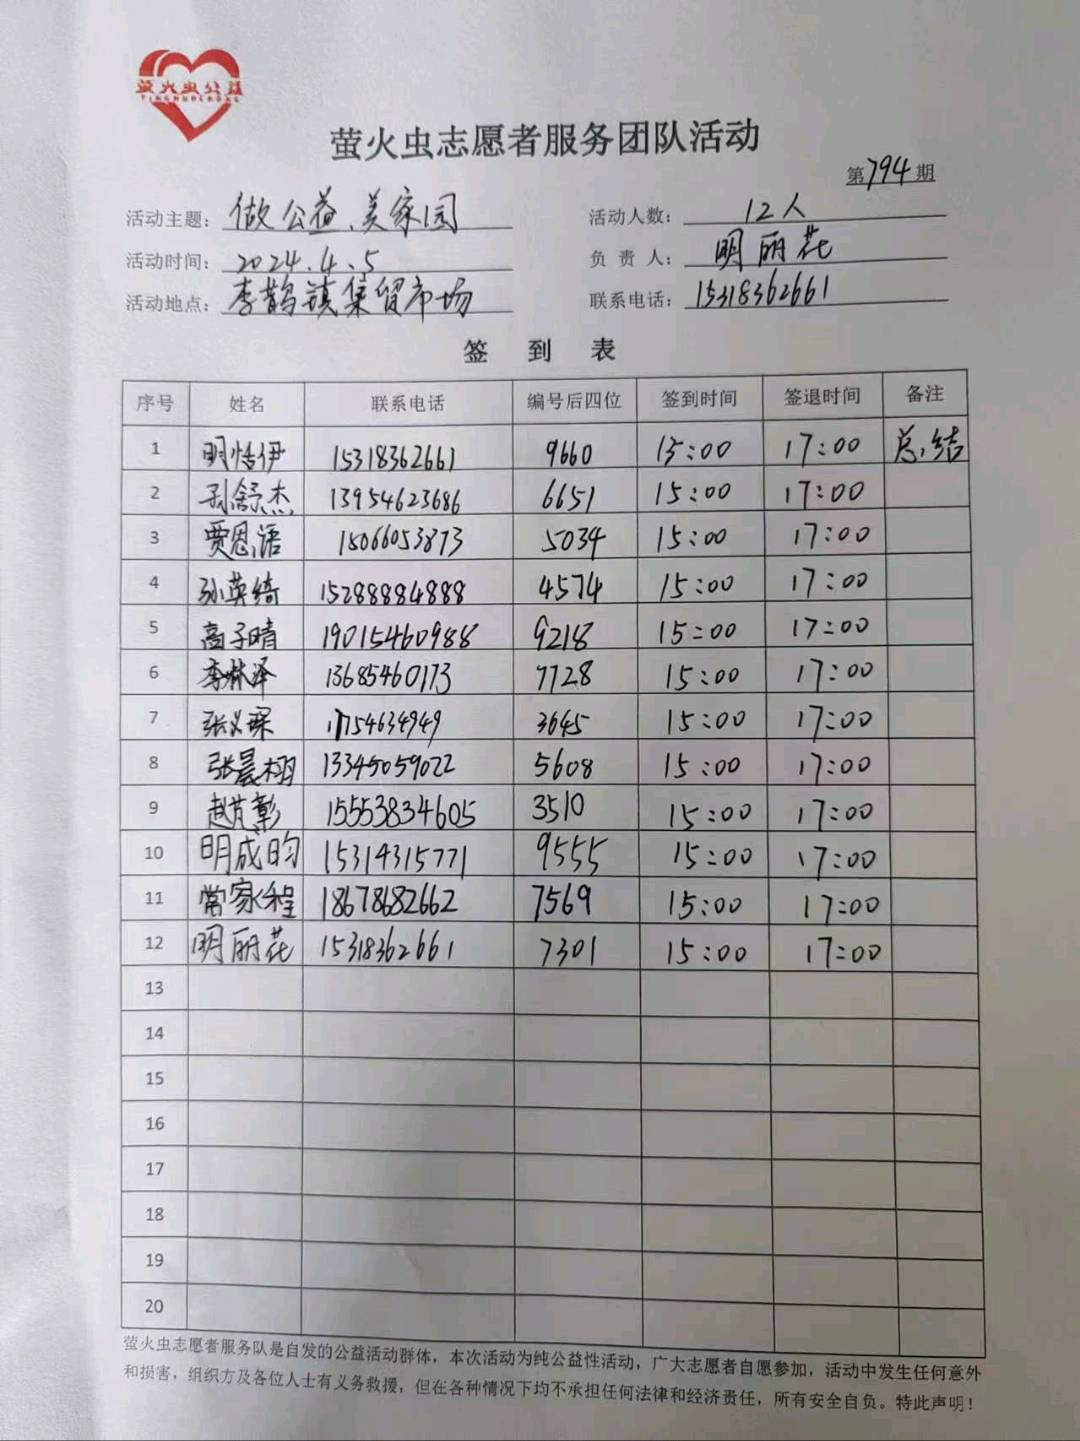 萤火虫公益
YINGHUOCHONG
萤火虫志愿者服务团队活动
第794期
活动主题：做公益、美家园 活动人数：12人
活动时间：2024.4.5 负责人：明丽花
活动地点：李鹊镇集贸市场 联系电话：15318362661
签到表
序号 姓名 联系电话 编号后四位 签到时间 签退时间 备注
1 明恬伊 15318362661 9660 15:00 17:00 总结
2 孙舒杰 13954623686 6651 15:00 17:00
3 贾恩语 15066053873 5034 15:00 17:00
4 孙英绮 15288884888 4574 15:00 17:00
5 高子晴 19015460988 9218 15:00 17:00
6 李林泽 13685460173 7728 15:00 17:00
7 张义琛 17754634949 3645 15:00 17:00
8 张晨栩 13345059022 5608 15:00 17:00
9 赵芃彰 15553834605 3510 15:00 17:00
10 明成昀 15314315771 9555 15:00 17:00
11 常家程 18678682662 7569 15:00 17:00
12 明丽花 15318362661 7301 15:00 17:00
13
14
15
16
17
18
19
20
萤火虫志愿者服务队是自发的公益活动群体，本次活动为纯公益性活动，广大志愿者自愿参加，活动中发生任何意外
和损害，组织方及各位人士有义务救援，但在各种情况下均不承担任何法律和经济责任，所有安全自负。特此声明！